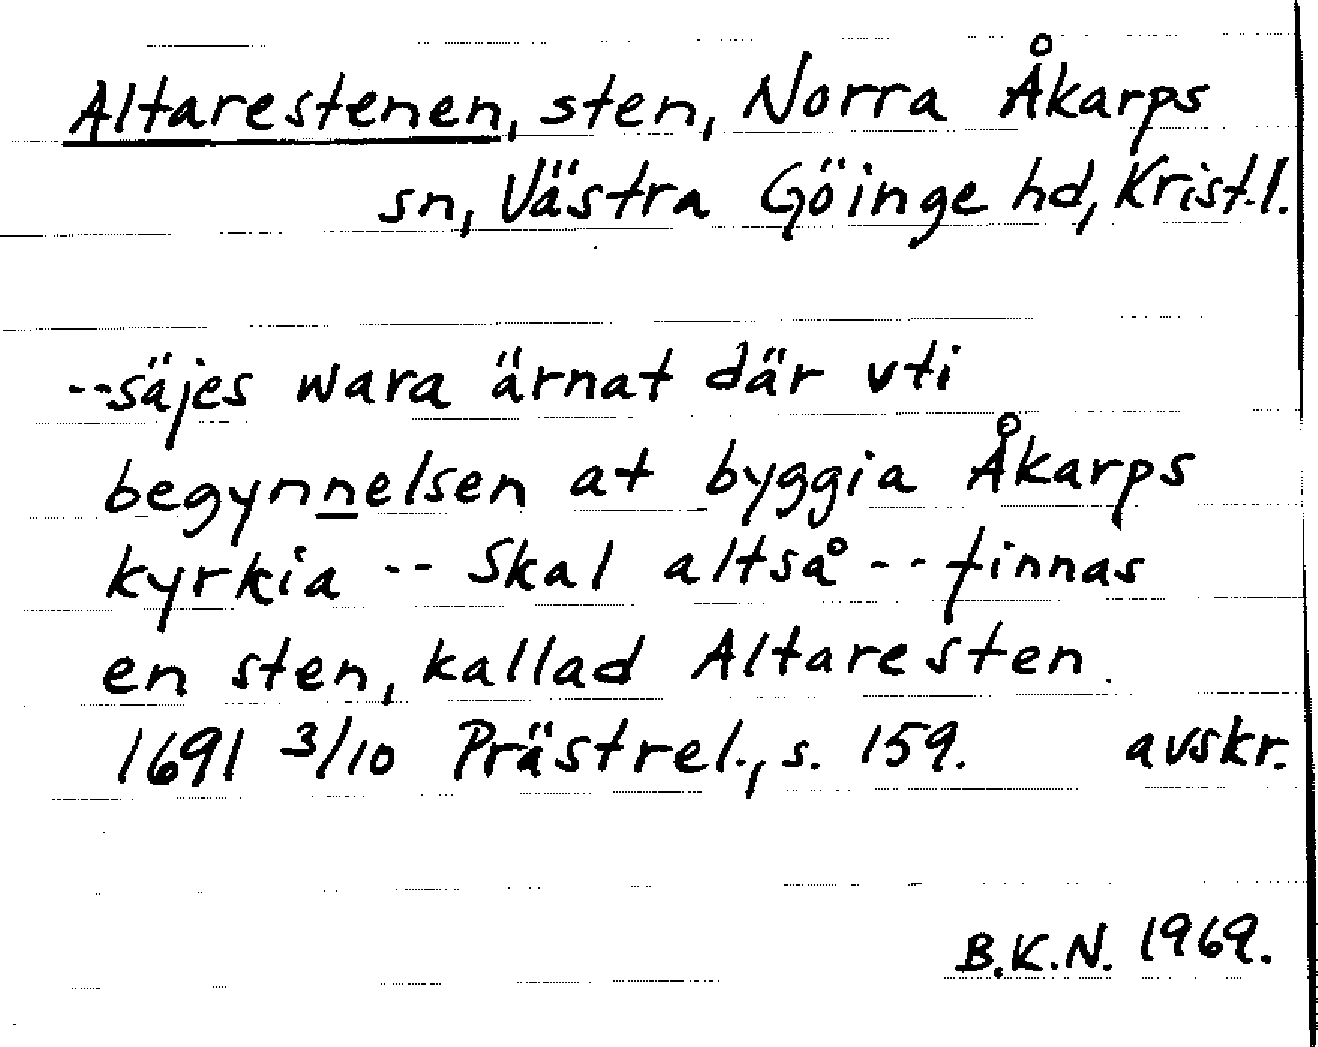 Altarestenen, sten, Norra Åkarps
sn, Västra Göinge hd, Krist.l.
--säjes wara ärnat där vti
begynnelsen at byggia Åkarps
kyrkia -- Skal altså -- finnas
en sten, kallad Altaresten.
1691 3/10 Prästrel., s. 159. avskr.
B.K.N. 1969.